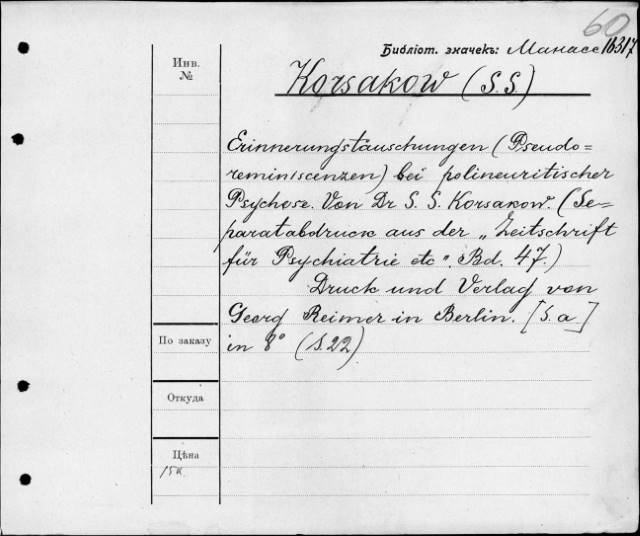 60
Библіот. значекъ: Манасс 16317
Инв.
№
Korsakow (S.S.)
Erinnerungstäuschungen (Pseudo=
reminiscenzen) bei polineuritischer
Psychose. Von Dr S. S. Korsakow. (Se=
paratabdruck aus der „Zeitschrift
für Psychiatrie etc“. Bd. 47.)
Druck und Verlag von
Georg Reimer in Berlin. [S. a]
По заказу
in 8° (S.22)
Откуда
Цѣна
15к